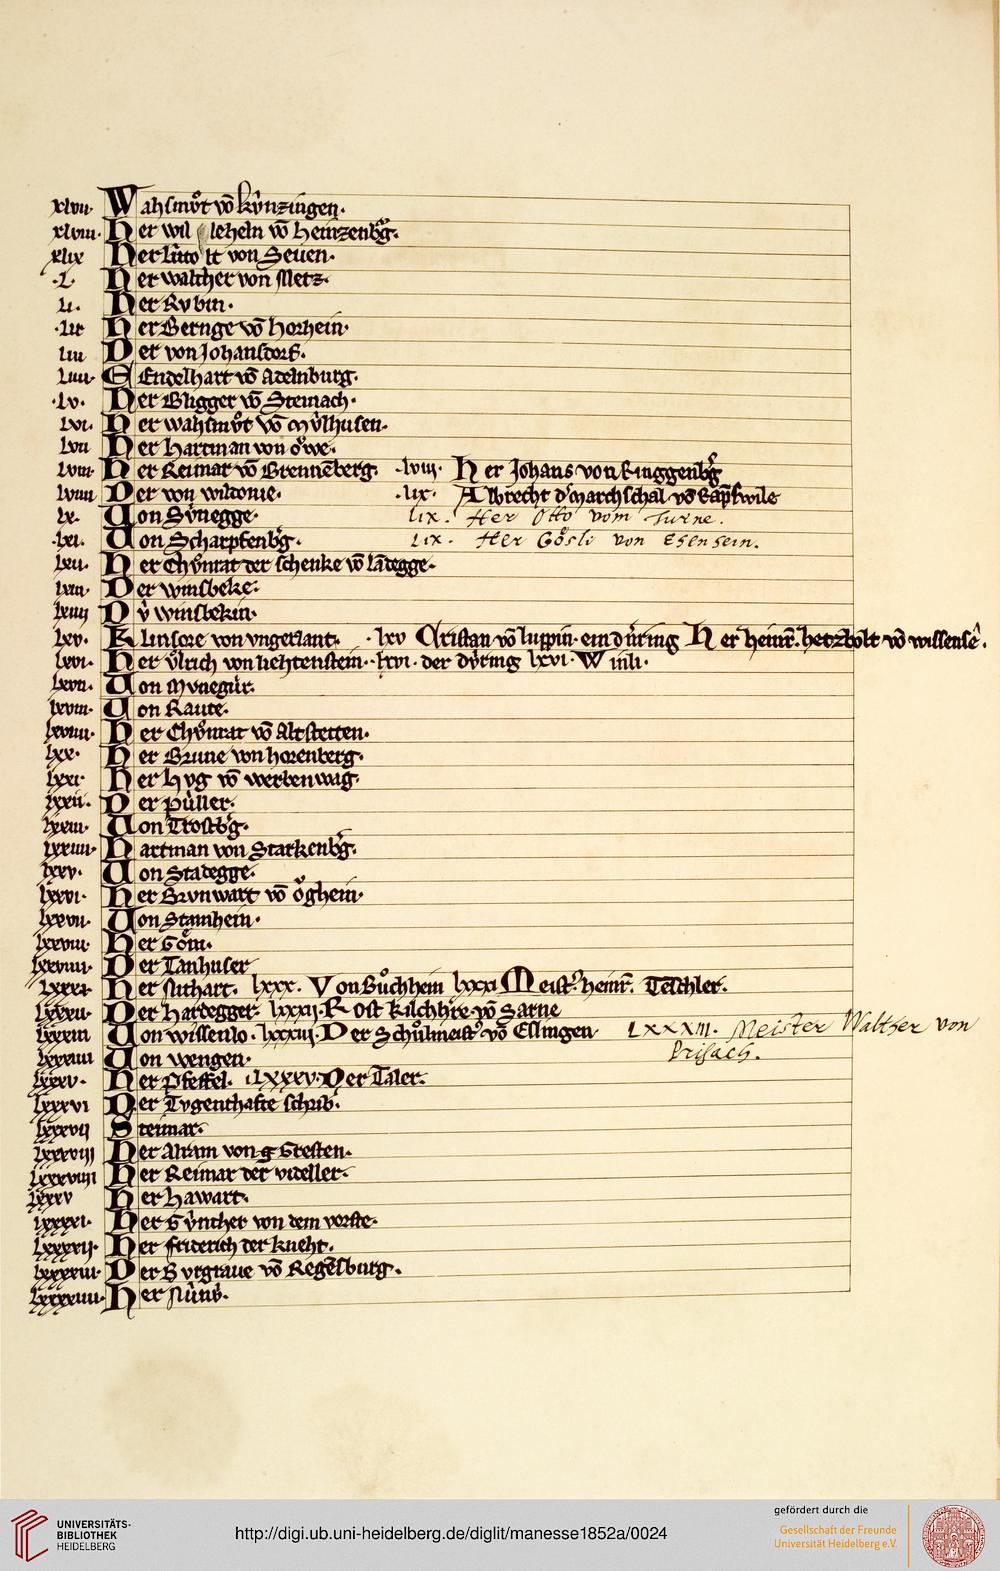 xlvii· Wahsmůt võ kv̂nzingen·
xlviii· Her wil leheln võ Heinzenbg̃·
xlix Her Lûto lt von Seuen·
·L· Her walther von Metz·
Li· Her Rvbin·
·Lii· Her Bernge võ horhein·
Liii Der von Johansdorf·
Liiii· Endelhart võ Adelnburg·
·Lv· Her Bligger võ Steinach·
Lvi· Her wahsmůt võ mv̂lhusen·
Lvii Her Hartman von ǒwe·
Lviii· Her Reimar võ Brennẽberg· ·lviii· Her Johans von Ringgenbg̃
Lviiii Der von wildonie· ·lix· Albrecht d' marchschal võ Rap̃swile
Lx· Uon Sv̂negge· lix. Her Otto vom Turne.
·Lxi· Uon Scharpfenbg̃· lix. Her Gösli von Ehenhein.
Lxii· Her Chůnrat der schenke võ lãdegge·
Lxiii· Der winsbeke·
Lxiiij Dv̂ winsbekin·
Lxv· Klinsore von vngerlant· ·lxv Cristan võ luppin· ein dv̂ring Her heinr̃· hetzbolt võ wissense·
Lxvi· Her v̊lrich von liehtenstein· ·lxvi· der dv̂ring lxvi· Winli·
Lxvii· Uon Mvnegûr·
Lxviii· Uon Raute·
Lxviiii· Her Chůnrat võ Altstetten·
Lxx· Her Brune von horenberg·
Lxxi· Her Hvg võ werbenwag·
Lxxii· Der pûller·
Lxxiii· Uon Trostbg̃·
Lxxiiii· Hartman von Starkenbg̃·
Lxxv· Uon Stadegge·
Lxxvi· Her Brvnwart võ ǒghein·
Lxxvii· Uon Stamhein·
Lxxviii· Her Göm·
Lxxviiii· Der Tanhuser
Lxxxi· Her Nithart· lxxx· Von Bůchhein lxxxi Meist' heinr̃· Teschler·
Lxxxii· Der Hardegger· lxxxij· Rost kilchhr̃e võ Sarne
Lxxxiii Uon wissenlo· lxxxiij· Der Schůlmeist' võ Esslingen LXXXIII. Meister Walther von
Prisach.
Lxxxiiii Uon wengen·
Lxxxv· Her Pfeffel· ·Lxxxv· Der Taler·
Lxxxvi Der Tvgenthafte schrib'·
Lxxxvij Steimar·
Lxxxviij Her Alram von g Gresten·
Lxxxviiii Her Reimar der videller·
Lxxxx Her Hawart·
Lxxxxi· Her Gv̂nther von dem vorste·
Lxxxxij· Her Friderich der kneht·
Lxxxxiii· Der Burgraue võ Regẽsburg·
Lxxxxiiii· Her Nûnẽ·
UNIVERSITÄTS-
BIBLIOTHEK
HEIDELBERG
http://digi.ub.uni-heidelberg.de/diglit/manesse1852a/0024
gefördert durch die
Gesellschaft der Freunde
Universität Heidelberg e.V.